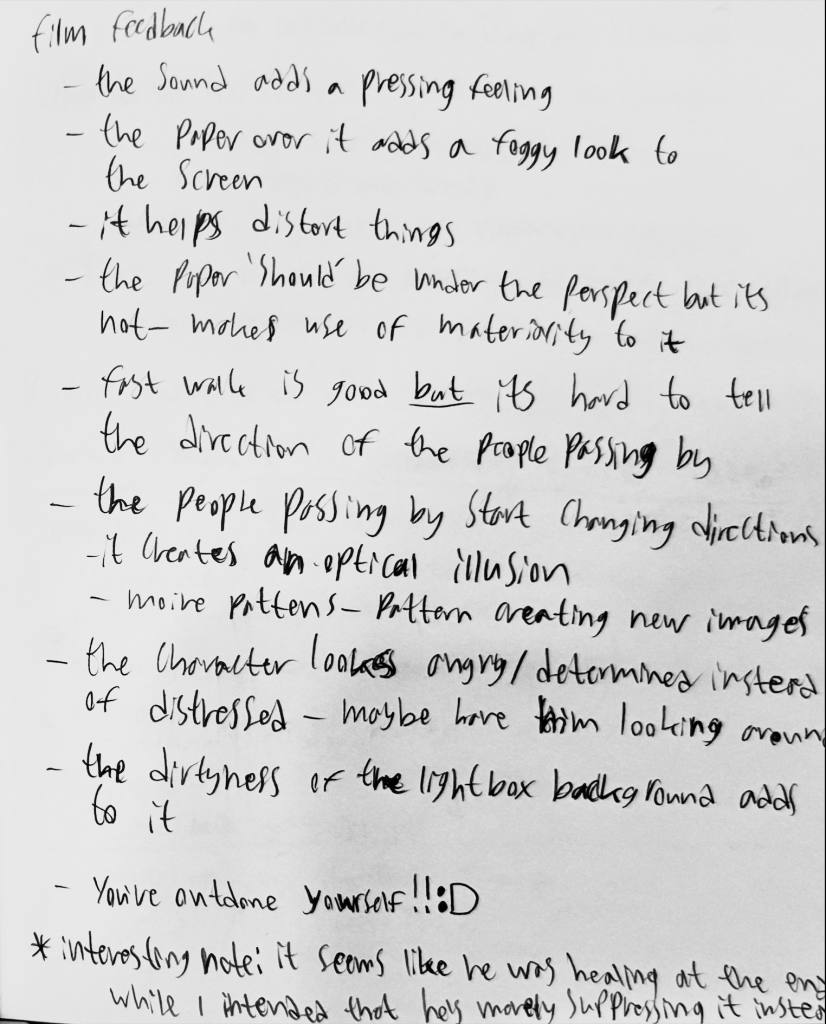 film feedback
- the sound adds a pressing feeling
- the paper over it adds a foggy look to
the screen
- it helps distort things
- the paper 'should' be under the perspect but its
not - makes use of materiality to it
- fast walk is good but its hard to tell
the direction of the people passing by
- the people passing by start changing directions
- it creates an optical illusion
- moire pattens - pattern creating new images
- the character lookes angry/determined instead
of distressed - maybe have him looking aroun
- the dirtyness of the lightbox background adds
to it
- You've outdone yourself!!:D
* interesting note: it seems like he was healing at the end
while I intended that he's merely suppressing it instea